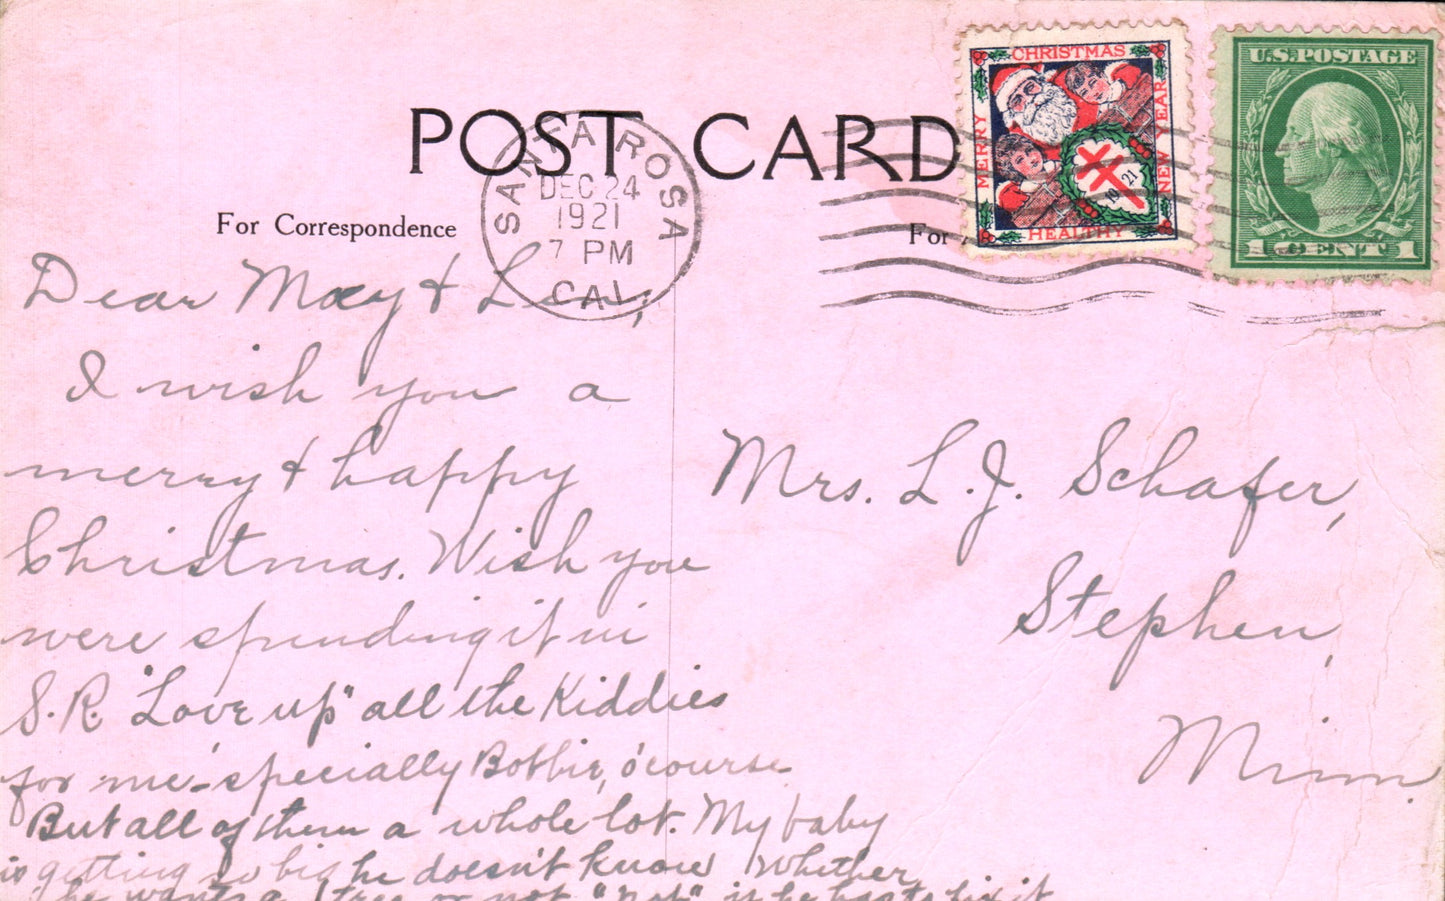 POST CARD
For Correspondence
For
SANTA ROSA
DEC 24
1921
7 PM
CAL.
MERRY CHRISTMAS
HEALTHY NEW YEAR
1921
U.S. POSTAGE
1 CENT 1
Dear May & Len,
I wish you a
merry & happy
Christmas. Wish you
were spending it in
S.R. "Love up" all the Kiddies
for me - 'specially Bobbie, o'course
But all of them a whole lot. My baby
is getting so big he doesn't know whether
he wants a tree or not "not" if he has to fix it
Mrs. L. J. Schafer,
Stephen,
Minn.